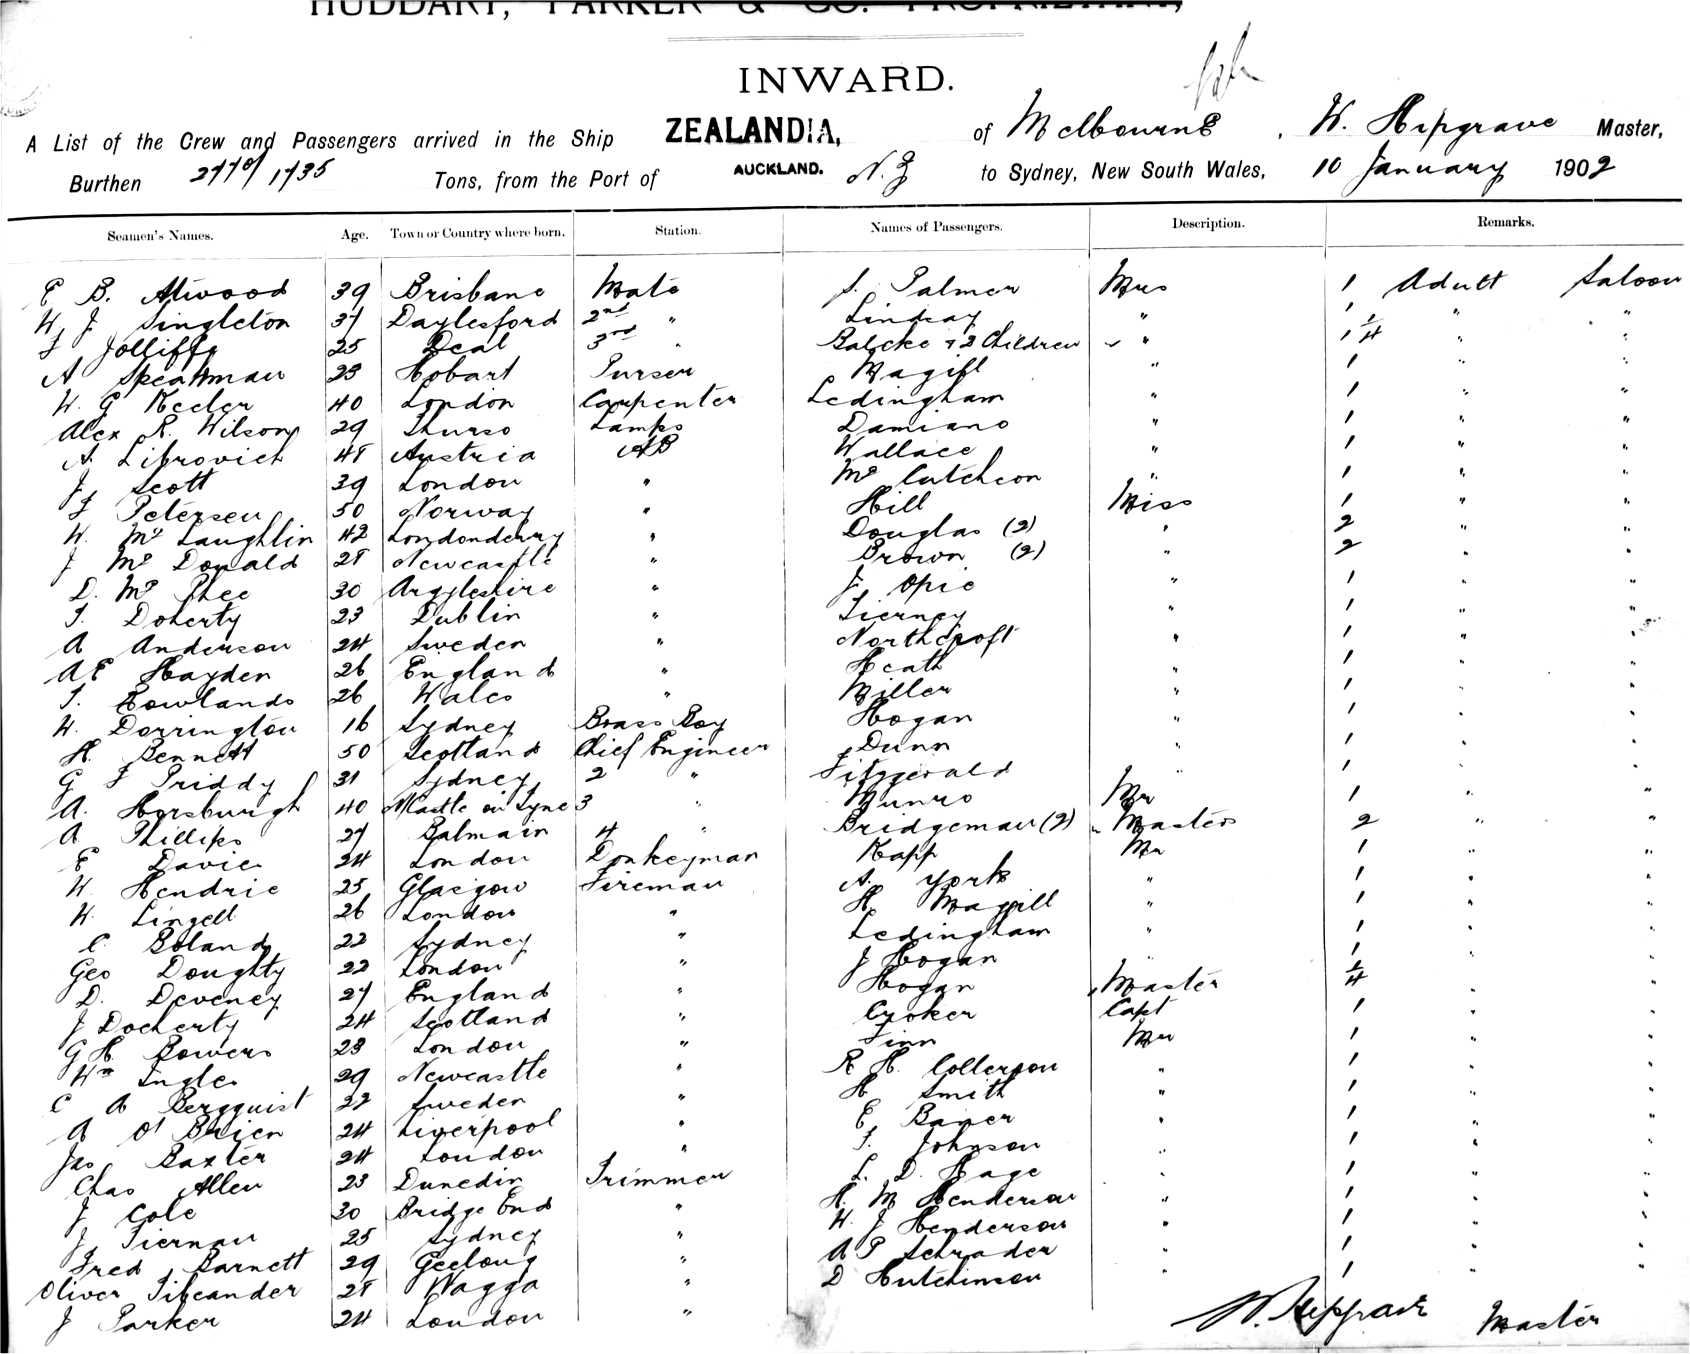 HUDDART, PARKER & CO. PROPRIETARY,
INWARD.
A List of the Crew and Passengers arrived in the Ship ZEALANDIA, of Melbourne, W. Hipgrave Master,
Burthen 2770/1735 Tons, from the Port of AUCKLAND. N.Z to Sydney, New South Wales, 10 January 1902
Seamen's Names. Age. Town or Country where born. Station. Names of Passengers. Description. Remarks.
E B. Atwood 39 Brisbane Mate J. Palmer Mrs 1 Adult Saloon
W. J Singleton 37 Daylesford 2nd " Lindsay " 1 " "
F Jolliffe 25 Deal 3rd " Balcke & 2 Children " 1 1/4 " "
A Speakman 23 Hobart Purser Magill " 1 " "
W. G Keeler 40 London Carpenter Ledingham " 1 " "
Alex R. Wilson 29 Thurso Lamps Damiano " 1 " "
A. Librovich 48 Austria AB Wallace " 1 " "
J. Scott 39 London " Mc Cutcheon " 1 " "
F Petersen 50 Norway " Hill Miss 1 " "
W. Mc Laughlin 42 Londonderry " Douglas (2) " 2 " "
J Mc Donald 28 Newcastle " Brown (2) " 2 " "
D. Mc Phee 30 Argyleshire " J. Opie " 1 " "
T. Doherty 23 Dublin " Tierney " 1 " "
A Anderson 24 Sweden " Northcroft " 1 " "
AE Hayden 26 England " Heath " 1 " "
T. Rowlands 26 Wales " Miller " 1 " "
W. Dorrington 16 Sydney Brass Boy Hogan " 1 " "
H. Bennett 50 Scotland Chief Engineer Dunn " 1 " "
G F Priddy 31 Sydney 2 " Fitzgerald " 1 " "
A. Horsburgh 40 N'Castle on Tyne 3 " Munro Mr 1 " "
A Phillips 27 Balmain 4 " Bridgeman (2) " Masters 2 " "
E Davies 24 London Donkeyman Kapp Mr 1 " "
W. Hendrie 25 Glasgow Fireman A. York " 1 " "
W. Lingell 26 London " H. Magill " 1 " "
C. Boland 22 Sydney " Ledingham " 1 " "
Geo Doughty 22 London " J Hogan " 1 " "
D. Deveney 27 England " Hogan " Master 1/4 " "
J Docherty 24 Scotland " Croker Capt 1 " "
G H. Bowers 23 London " Finn Mr 1 " "
Wm Ingles 29 Newcastle " R H. Collerson " 1 " "
C A Bergquist 22 Sweden " H Smith " 1 " "
A O'Brien 24 Liverpool " E. Baner " 1 " "
Jas Baxter 24 London " F. Johnson " 1 " "
Chas Allen 23 Dunedin Trimmer L. D. Hage " 1 " "
J Cole 30 Bridge End " H. M Henderson " 1 " "
J Tiernan 25 Sydney " W. J Henderson " 1 " "
Fred Barnett 29 Geelong " A P Schrader " 1 " "
Oliver Tileander 28 Wagga " D Hutchinson " 1 " "
J Parker 24 London "
W. Hipgrave Master